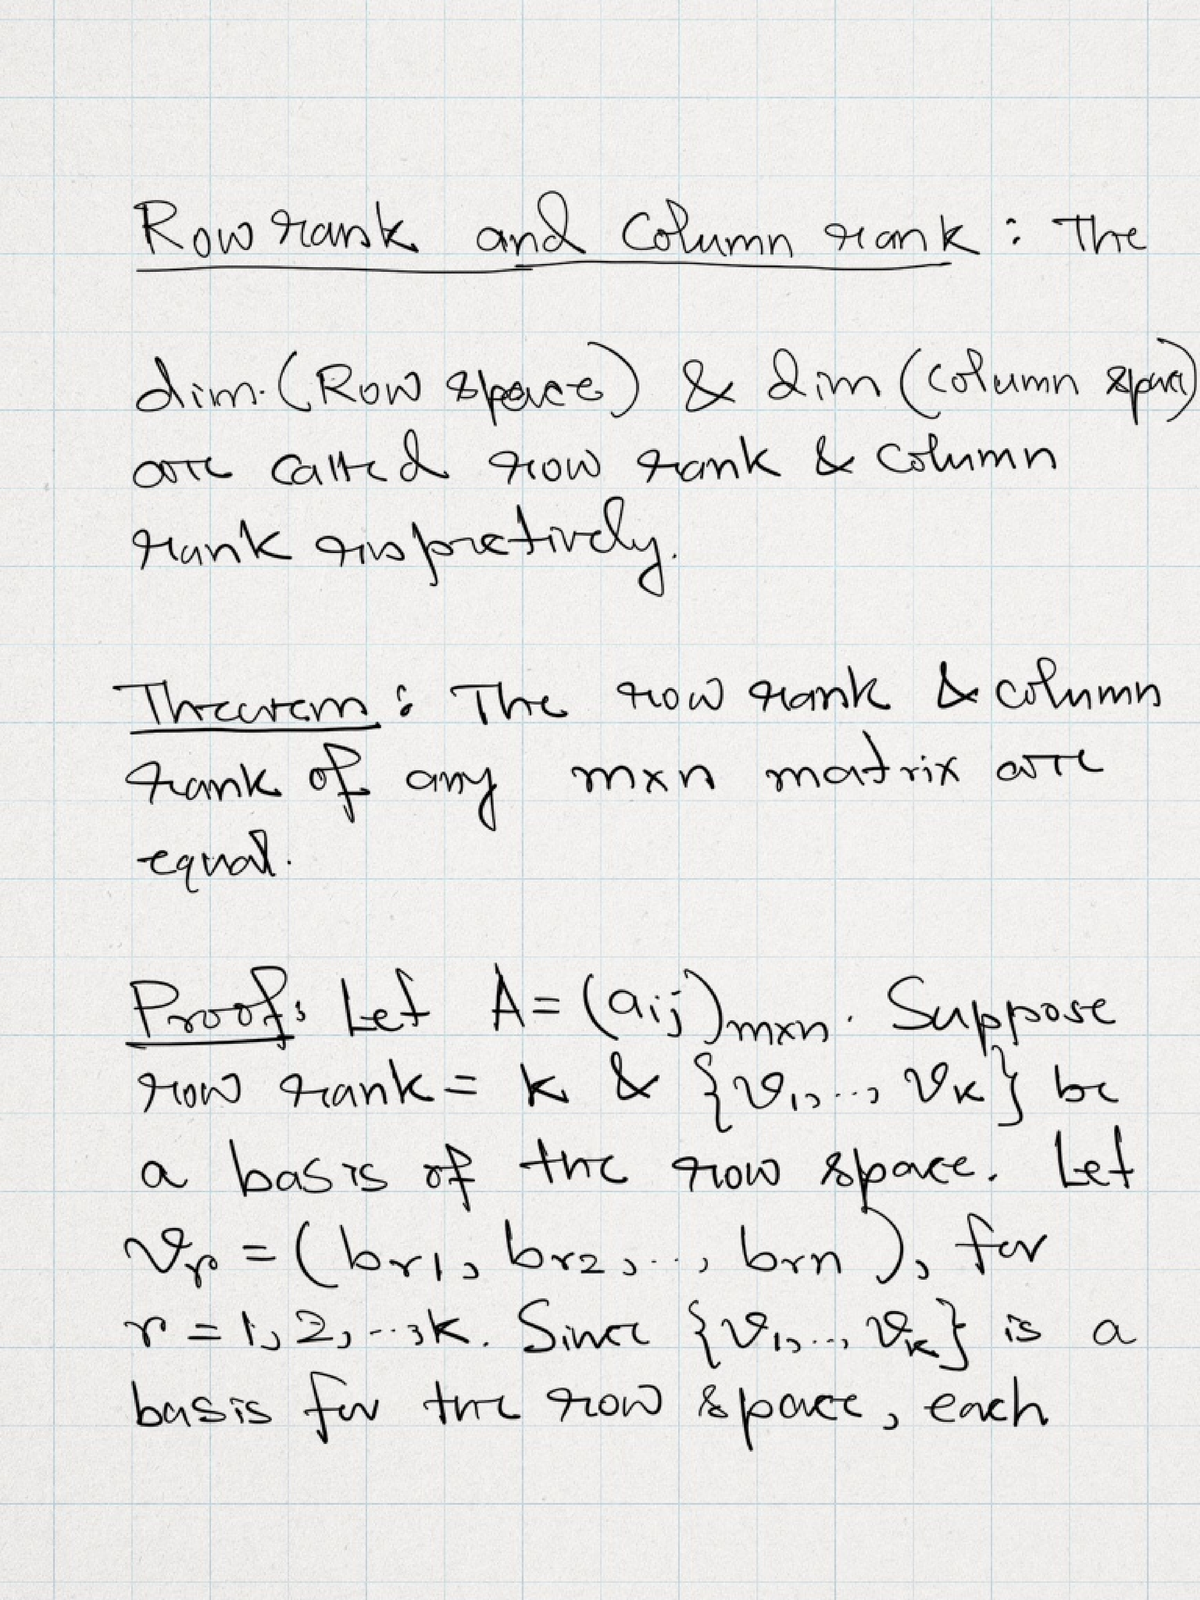 Row rank and Column rank : The
dim.(Row space) & dim (column space)
are called row rank & column
rank respectively.
Theorem : The row rank & column
rank of any m×n matrix are
equal.
Proof: Let A = (aij)m×n. Suppose
row rank = k & {v1,..., vk} be
a basis of the row space. Let
vr = (br1, br2,..., brn), for
r = 1, 2,...,k. Since {v1,..., vk} is a
basis for the row space, each